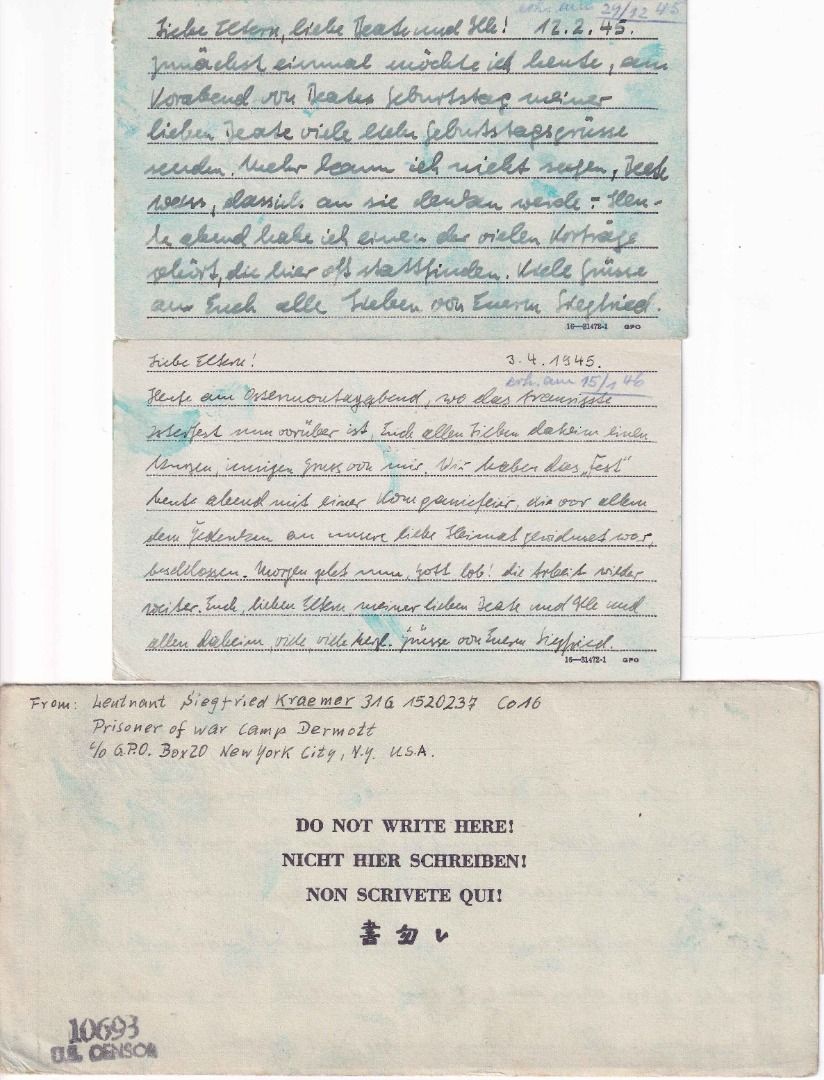 erh. am 29/12 45
Liebe Eltern, liebe Beate und Ille! 12.2.45.
zunächst einmal möchte ich heute, am
Vorabend von Beates Geburtstag meiner
lieben Beate viele liebe Geburtstagsgrüsse
senden. Mehr kann ich nicht sagen, Beate
weiss, dass ich an sie denken werde - Heu-
te abend habe ich einen der vielen Vorträge
gehört, die hier oft stattfinden. Viele Grüsse
an Euch alle Lieben von Euerm Siegfried.
16—31472-1 GPO
Liebe Eltern! 3.4.1945.
erh. am 15/1 46
Heute am Ostermontagabend, wo das
Osterfest nun vorüber ist, Euch allen Lieben daheim einen
kurzen, innigen Gruss von mir. Wir haben das „Fest"
heute abend mit einer Kompaniefeier, die vor allem
dem Gedenken an unsere liebe Heimat gewidmet war,
beschlossen. Morgen geht nun, Gott lob! die Arbeit wieder
weiter. Euch, lieben Eltern meiner lieben Beate und Ille und
allen daheim, viele, viele herzl. Grüsse von Euerm Siegfried.
16—31472-1 GPO
From: Leutnant Siegfried Kraemer 31G 1520237 Co16
Prisoner of war camp Dermott
c/o G.P.O. Box 20 New York City, N.Y. U.S.A.
DO NOT WRITE HERE!
NICHT HIER SCHREIBEN!
NON SCRIVETE QUI!
書勿レ
10693
U.S. CENSOR